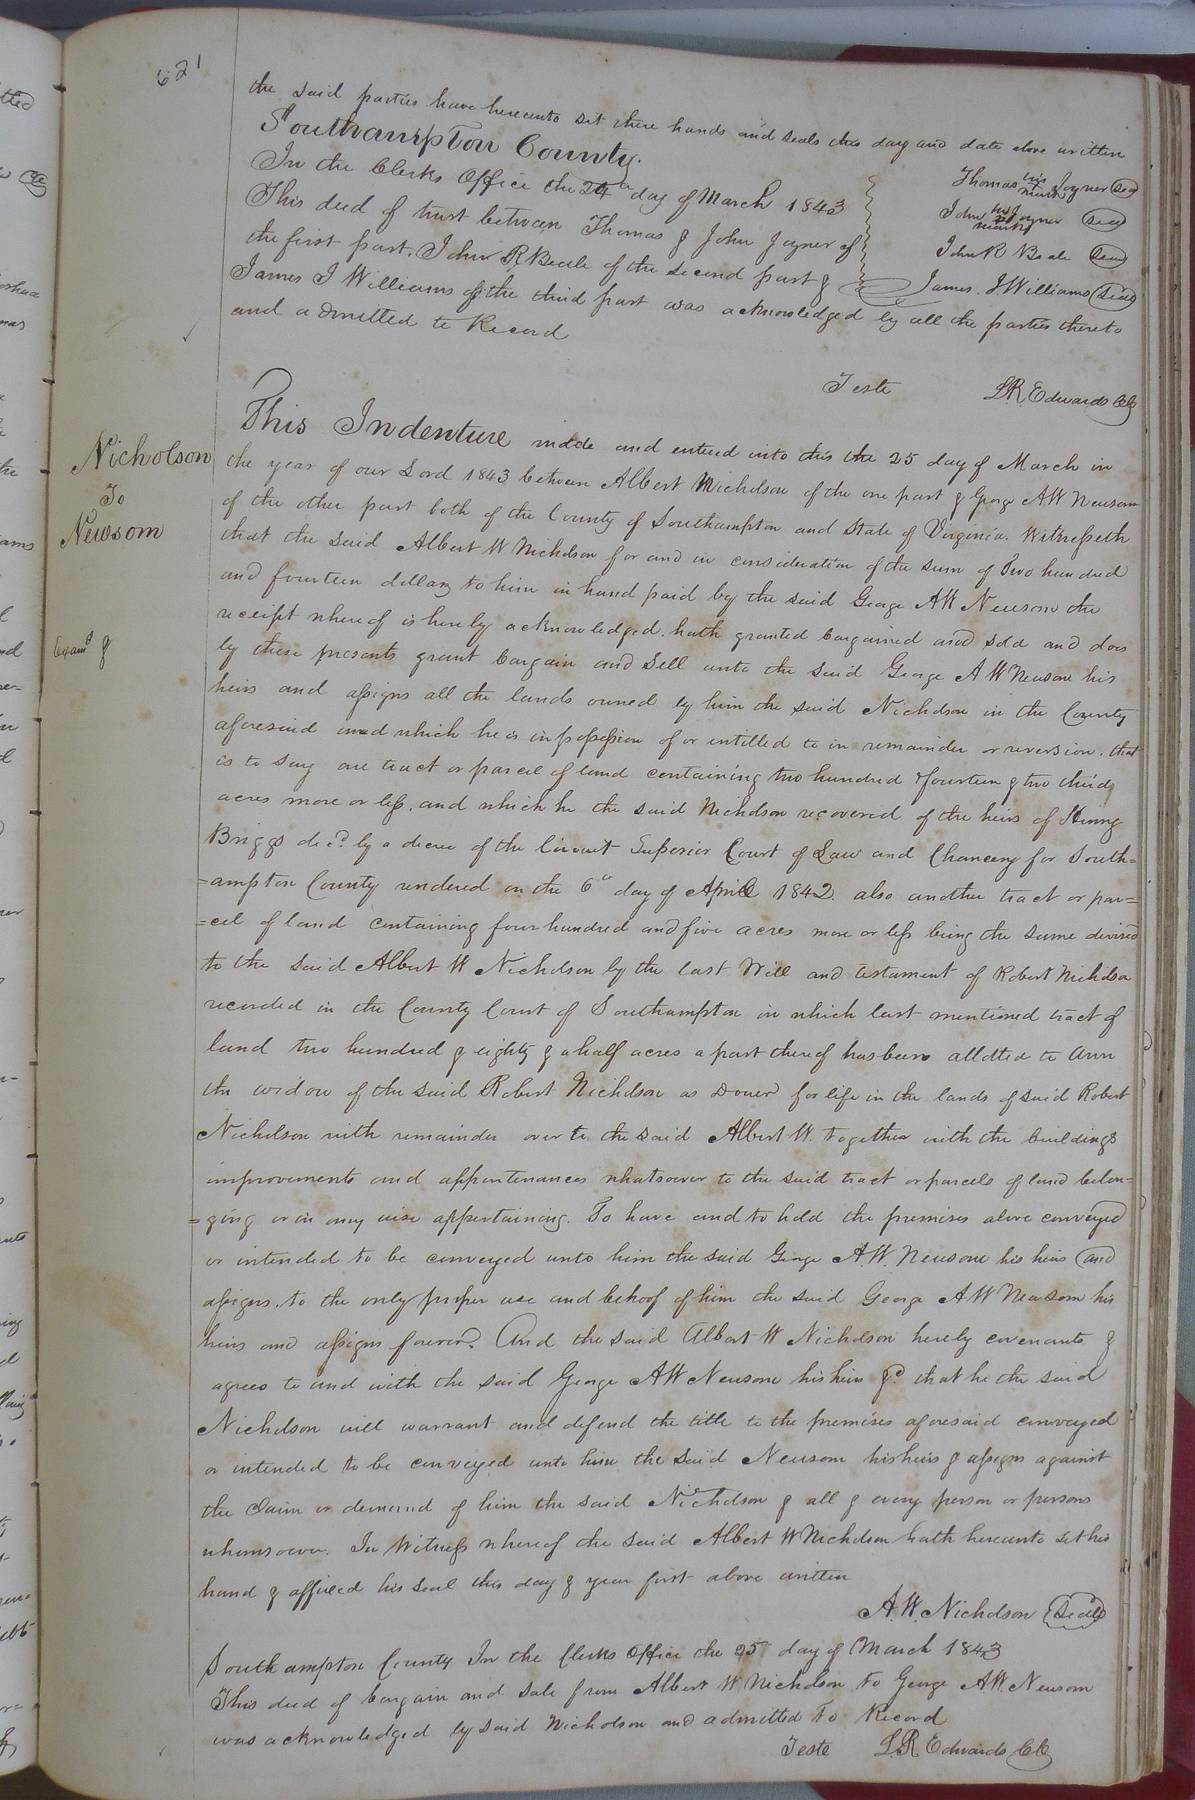 621
the said parties have hereunto set there hands and seals this day and date above written
Southampton County.
In the Clerks Office the 24th day of March 1843
This deed of trust between Thomas & John Joyner of
the first part, John R Beale of the second part &
James J Williams of the third part was acknowledged by all the parties thereto
and admitted to Record
Thomas his mark Joyner Seal
John his mark Joyner Seal
John R Beale Seal
James. J Williams Seal
Teste L R Edwards CC
Nicholson
To
Newsom
Examd &
This Indenture made and entered into this the 25 day of March in
the year of our Lord 1843 between Albert Nicholson of the one part & George A W Newsom
of the other part both of the County of Southampton and State of Virginia. Witnesseth
that the said Albert W Nicholson for and in consideration of the sum of Two hundred
and fourteen dollars to him in hand paid by the said George A W Newsom the
receipt whereof is hereby acknowledged. hath granted bargained and sold and does
by these presents grant bargain and Sell unto the said George A W Newsom his
heirs and assigns all the lands owned by him the said Nicholson in the County
aforesaid and which he is in possession of or intitled to in remainder or reversion. that
is to say one tract or parcel of land containing two hundred & fourteen & two thirds
acres more or less, and which he the said Nicholson recovered of the heirs of Henry
Briggs decd. by a decree of the Circuit Superior Court of Law and Chancery for South=
=ampton County rendered on the 6th day of April 1842. also another tract or par=
=cel of land containing four hundred and five acres more or less being the same devised
to the said Albert W Nicholson by the last Will and testament of Robert Nicholson
recorded in the County Court of Southampton in which last mentioned tract of
land two hundred & eighty & a half acres a part thereof has been allotted to Ann
the widow of the said Robert Nicholson as Dower for life in the lands of said Robert
Nicholson with remainder over to the said Albert W. together with the buildings
improvements and appurtenances whatsoever to the said tract or parcels of land belon=
=ging or in any wise appertaining. To have and to hold the premises above conveyed
or intended to be conveyed unto him the said George A. W. Newsom his heirs and
assigns, to the only proper use and behoof of him the said George A W Newsom his
heirs and assigns forever. And the said Albert W Nicholson hereby covenants &
agrees to and with the said George A W Newsom his heirs &c that he the said
Nicholson will warrant and defend the title to the premises aforesaid conveyed
or intended to be conveyed unto him the said Newsom his heirs & assigns against
the claim or demand of him the said Nicholson & all & every person or persons
whomsoever. In Witness whereof the said Albert W Nicholson hath hereunto set his
hand & affixed his seal this day & year first above written
A. W. Nicholson Seal
Southampton County In the Clerks Office the 25th day of March 1843
This deed of bargain and sale from Albert W Nicholson to George A W. Newsom
was acknowledged by said Nicholson and admitted to Record
Teste L R Edwards CC